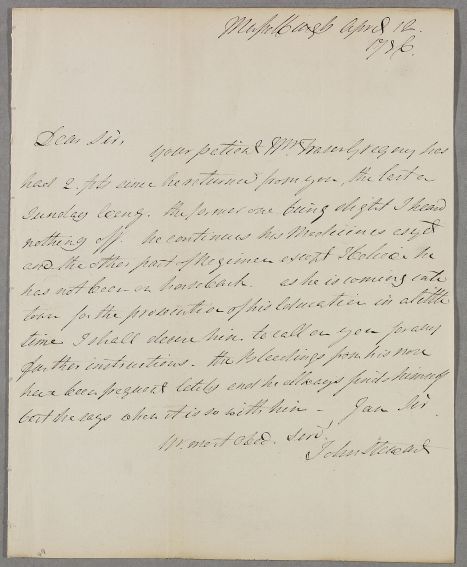 Musselburgh April 12.
1786.
Dear Sir,
Your patient Mr. Fraser Gregory has
had 2 fits since he returned from you, the last on
Sunday being. the former one being slight I heard
nothing off. he continues his Medicines
and the other part of Regimen except I believe he
has not been on horseback. as he is coming into
town for the prosecution of his Education in a little
time I shall desire him to call on you for any
further instructions. the Bleedings from his nose
have been frequent lately and he allways finds himself
best he says when it is so with him - I am Sir
Yr. most Obed. Servt.
John Steward